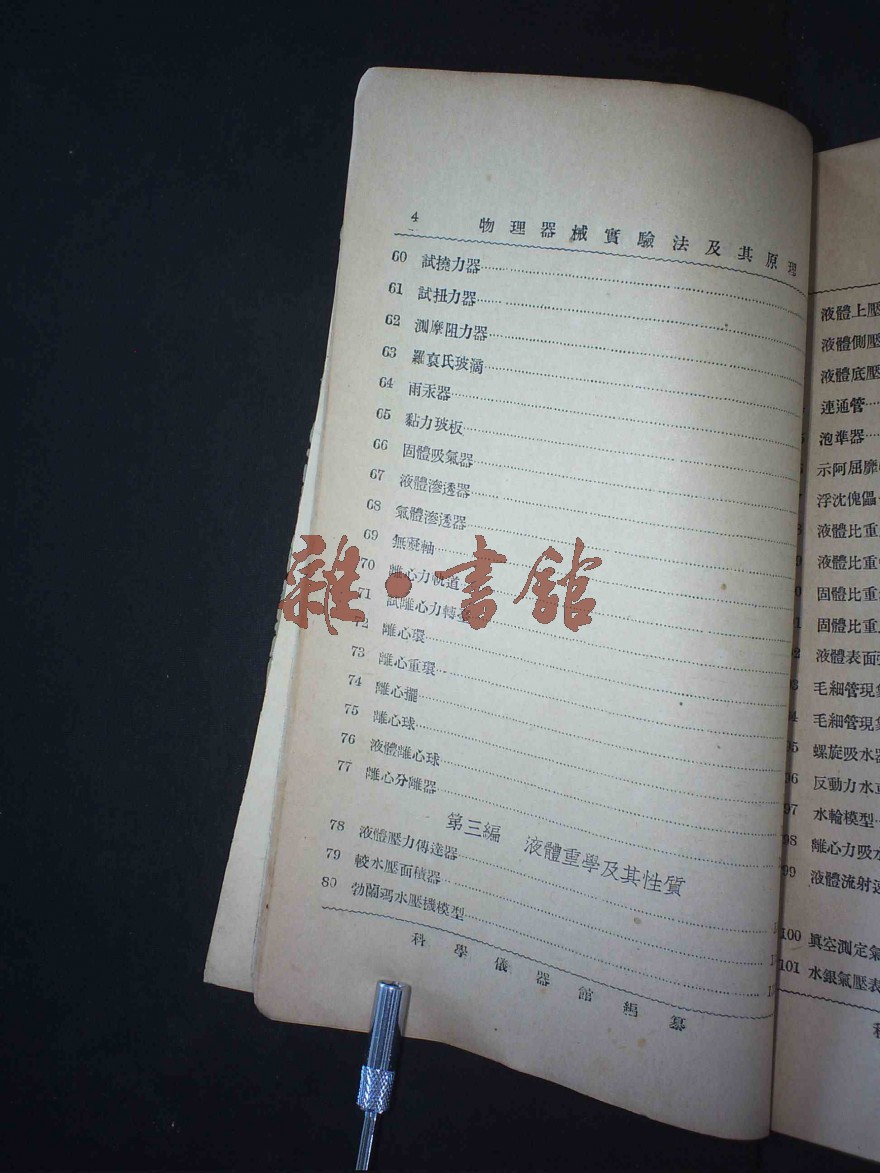 4 物理器械實驗法及其原理
60 試撓力器
61 試扭力器
62 測摩阻力器
63 羅哀氏玻滴
64 雨汞器
65 黏力玻板
66 固體吸氣器
67 液體滲透器
68 氣體滲透器
69 無礙軸
70 離心力軌道
71 試離心力轉臺
72 離心環
73 離心重環
74 離心擺
75 離心球
76 液體離心球
77 離心分離器
第三編 液體重學及其性質
78 液體壓力傳達器
79 較水壓面積器
80 勃蘭瑪水壓機模型
科學儀器館編纂
雜·書館
液體上壓
液體側壓
液體底壓
連通管
泡準器
示阿屈靡
浮沈傀儡
液體比重
液體比重
固體比重
固體比重
液體表面
毛細管現象
毛細管現象
螺旋吸水器
反動力水
水輪模型
98 離心力吸水
99 液體流射
100 眞空測定氣
101 水銀氣壓表